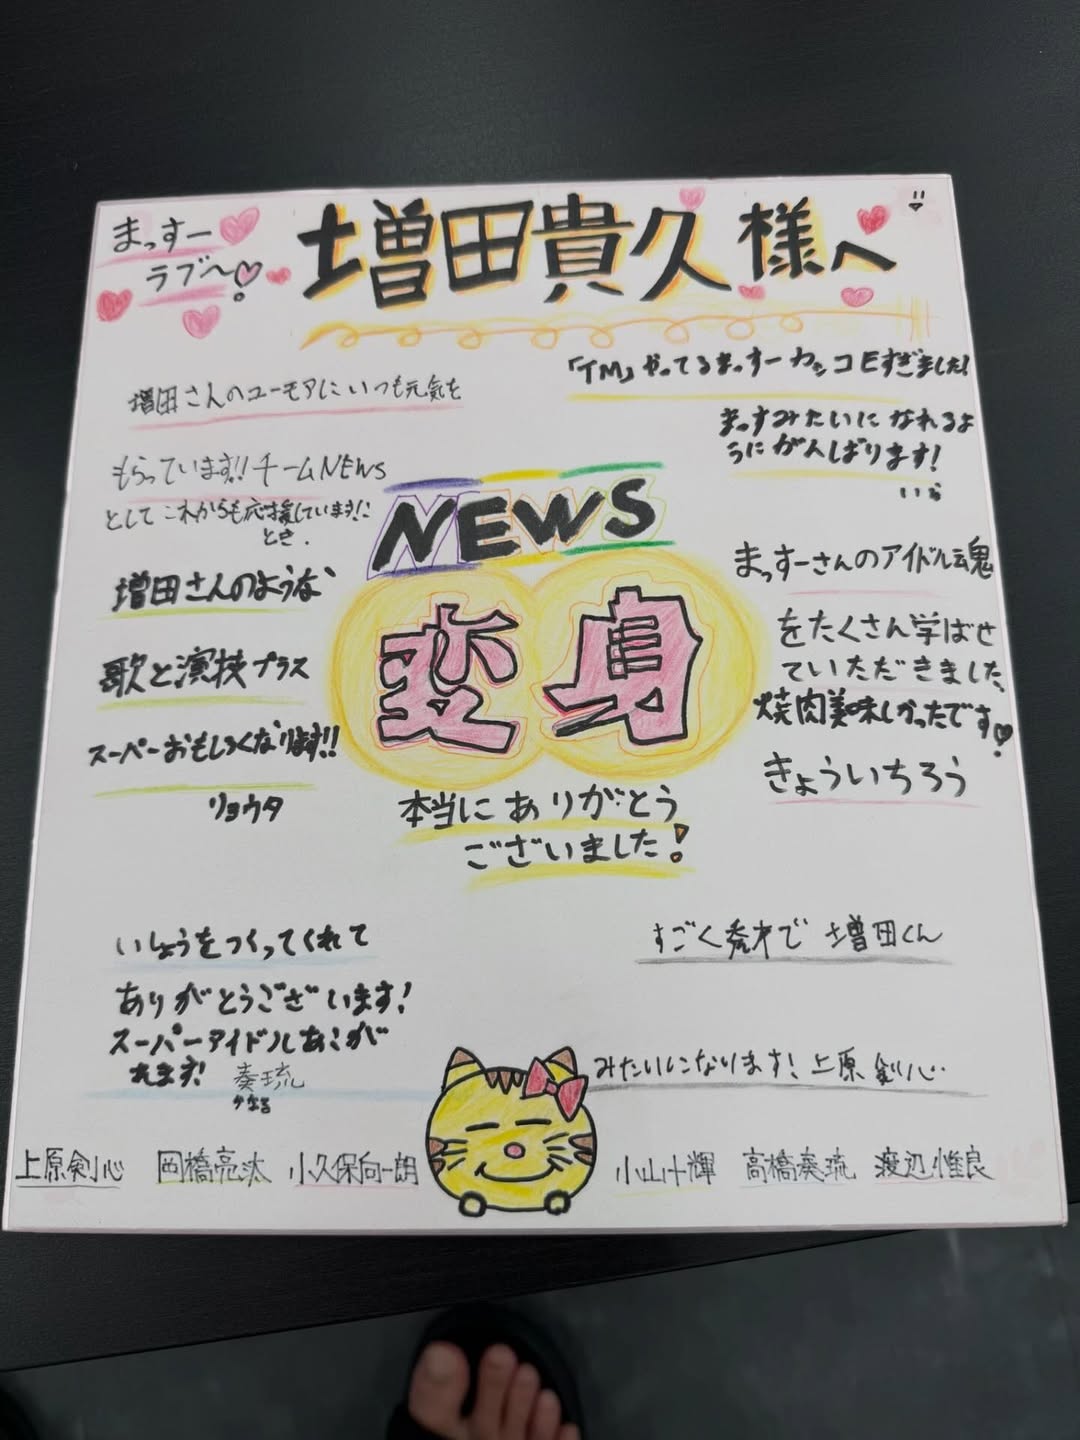 まっすー
ラブ〜
増田貴久様へ
増田さんのユーモアにいつも元気を
もらっています!!チームNEWS
としてこれからも応援しています!!
とき.
「TM」やってるまっすーカッコEすぎました!
まっすみたいになれるよ
うにがんばります!
いら
NEWS
変身
増田さんのような
歌と演技プラス
スーパーおもしろくなります!!
リョウタ
まっすーさんのアイドル魂
をたくさん学ばせ
ていただきました、
焼肉美味しかったです
きょういちろう
本当にありがとう
ございました!
いしょうをつくってくれて
ありがとうございます!
スーパーアイドルあこが
れます!
奏琉
かなる
すごく秀才で 増田くん
みたいになります! 上原剣心
上原剣心 岡橋亮汰 小久保向一朗 小山十輝 高橋奏琉 渡辺惟良